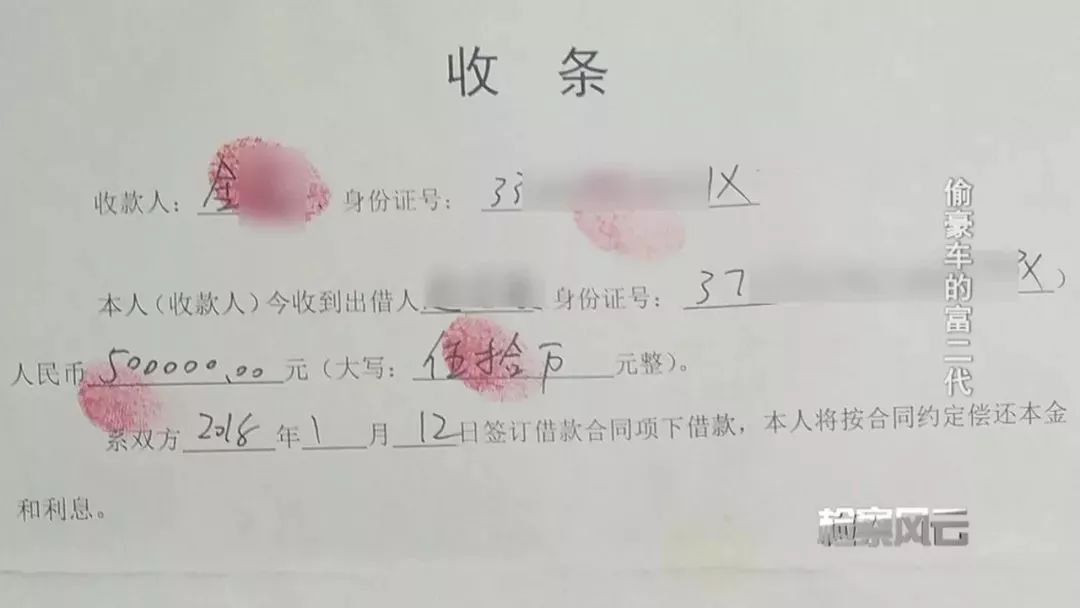 收 条
收款人：金 身份证号：33 1X
本人（收款人）今收到出借人 身份证号：37 3X）
人民币500000.00元（大写：伍拾万 元整）。
系双方2018年1月12日签订借款合同项下借款，本人将按合同约定偿还本金
和利息。
偷豪车的富二代
检察风云